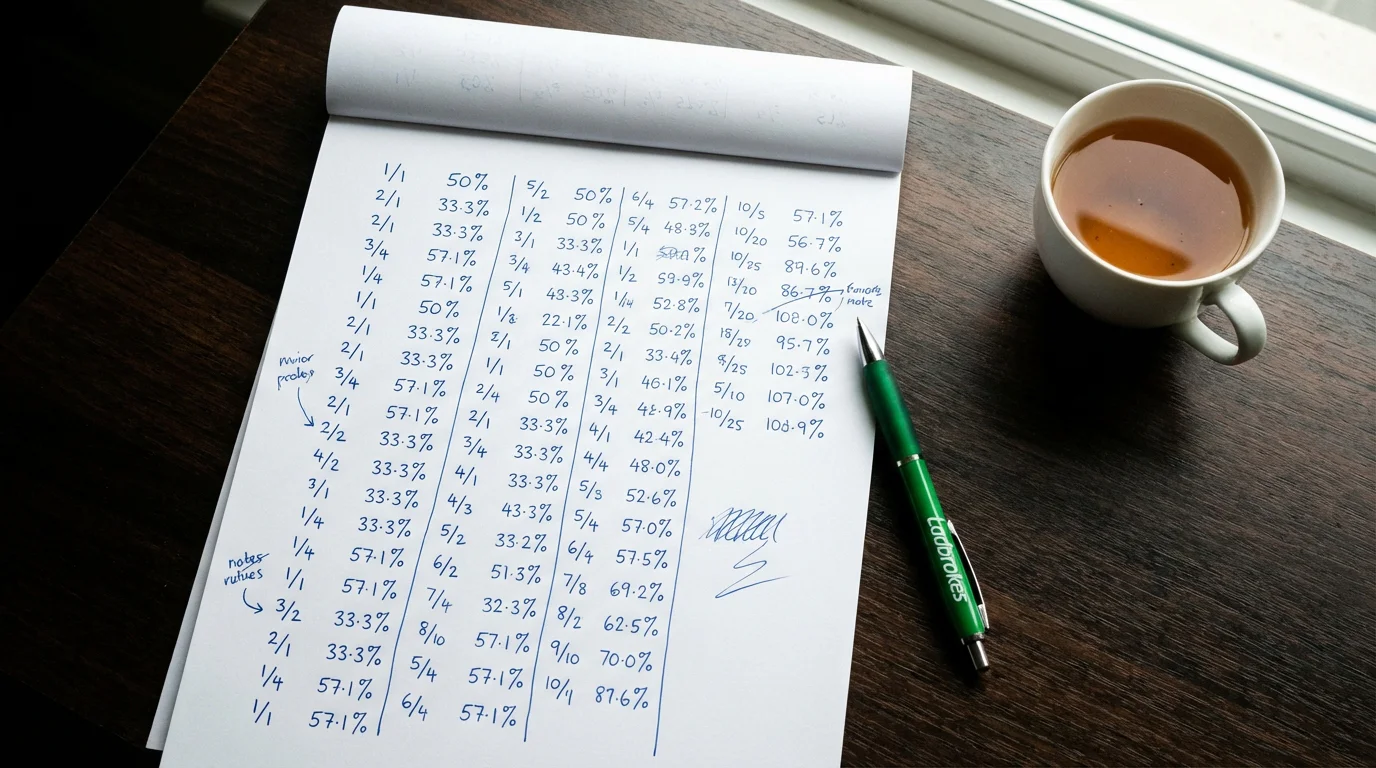 1/1 50%
2/1 33.3%
2/1 33.3%
3/4 57.1%
1/4 57.1%
1/1 50%
2/1 33.3%
2/1 33.3%
3/4 57.1%
2/1 57.1%
2/2 33.3%
4/2 33.3%
3/1 33.3%
1/4 33.3%
1/4 57.1%
1/1 57.1%
3/2 33.3%
2/1 33.3%
1/4 57.1%
1/1 57.1%
notes
5/2 50%
1/2 50%
3/1 33.3%
3/4 43.4%
5/1 43.3%
1/8 22.1%
50%
1/1 50%
2/4 50%
2/1 33.3%
3/4 33.3%
4/1 33.3%
4/3 43.3%
5/2 33.2%
6/2 51.3%
7/4 32.3%
8/10 57.1%
5/4 57.1%
6/4 57.1%
6/4 57.2%
5/4 48.3%
1/1 %
1/2 59.9%
1/4 52.8%
2/2 50.2%
2/1 33.4%
3/1 46.1%
3/4 48.9%
4/1 42.4%
4/4 48.0%
5/3 52.6%
5/4 57.0%
6/4 57.5%
7/8 69.2%
8/2 62.5%
9/10 70.0%
10/1 87.6%
10/5 57.1%
10/20 56.7%
10/25 89.6%
13/20 86.7%
7/20 108.0%
18/29 95.7%
8/25 102.3%
5/10 107.0%
10/25 108.9%
note
Ladbrokes